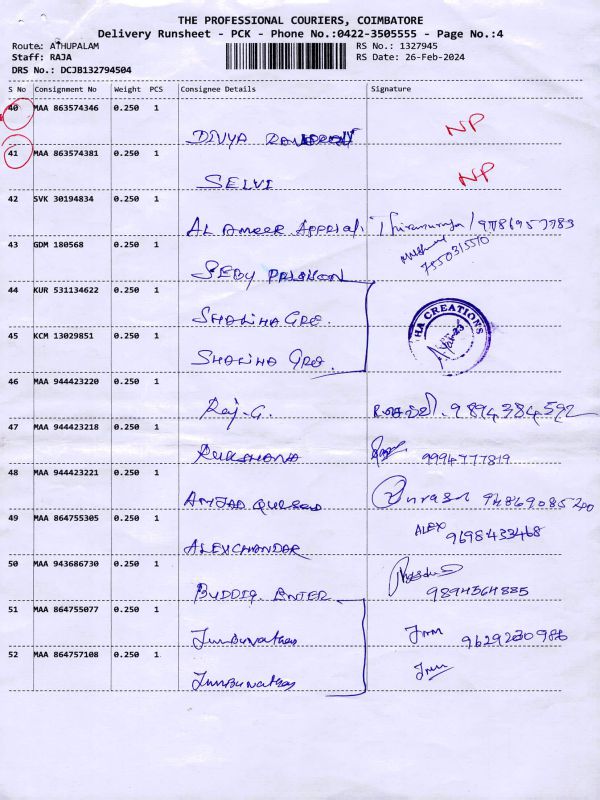 THE PROFESSIONAL COURIERS, COIMBATORE
Delivery Runsheet - PCK - Phone No.:0422-3505555 - Page No.:4
Route: ATHUPALAM RS No.: 1327945
Staff: RAJA RS Date: 26-Feb-2024
DRS No.: DCJB132794504
S No Consignment No Weight PCS Consignee Details Signature
40 MAA 863574346 0.250 1
DIVYA NP
41 MAA 863574381 0.250 1
SELVI NP
42 SVK 30194834 0.250 1
AL AMEER
43 GDM 180568 0.250 1
SEBY 7550315510
44 KUR 531134622 0.250 1
SHALIHA CRE. HA CREATIONS
45 KCM 13029851 0.250 1
SHALIHA CRE.
46 MAA 944423220 0.250 1
Raj. G. 9894384592
47 MAA 944423218 0.250 1
RUKSHANA 9994777819
48 MAA 944423221 0.250 1
AMJAD
49 MAA 864755305 0.250 1
ALEXCHANDAR ALEX 9698433468
50 MAA 943686730 0.250 1
BUDDIQ. ENTER 9894364885
51 MAA 864755077 0.250 1
9629230986
52 MAA 864757108 0.250 1